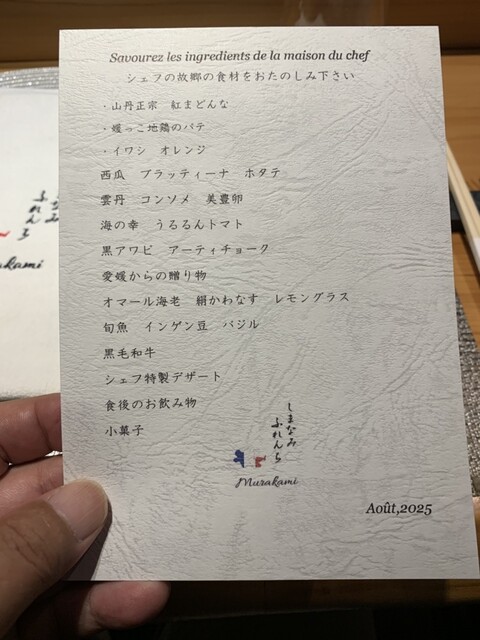 Savourez les ingredients de la maison du chef
シェフの故郷の食材をおたのしみ下さい
・山丹正宗　紅まどんな
・媛っこ地鶏のパテ
・イワシ　オレンジ
西瓜　ブラッティーナ　ホタテ
雲丹　コンソメ　美豊卵
海の幸　うるるんトマト
黒アワビ　アーティチョーク
愛媛からの贈り物
オマール海老　絹かわなす　レモングラス
旬魚　インゲン豆　バジル
黒毛和牛
シェフ特製デザート
食後のお飲み物
小菓子
しまなみ
ふれんち
Murakami
Août,2025
しまなみ
ふれんち
akami